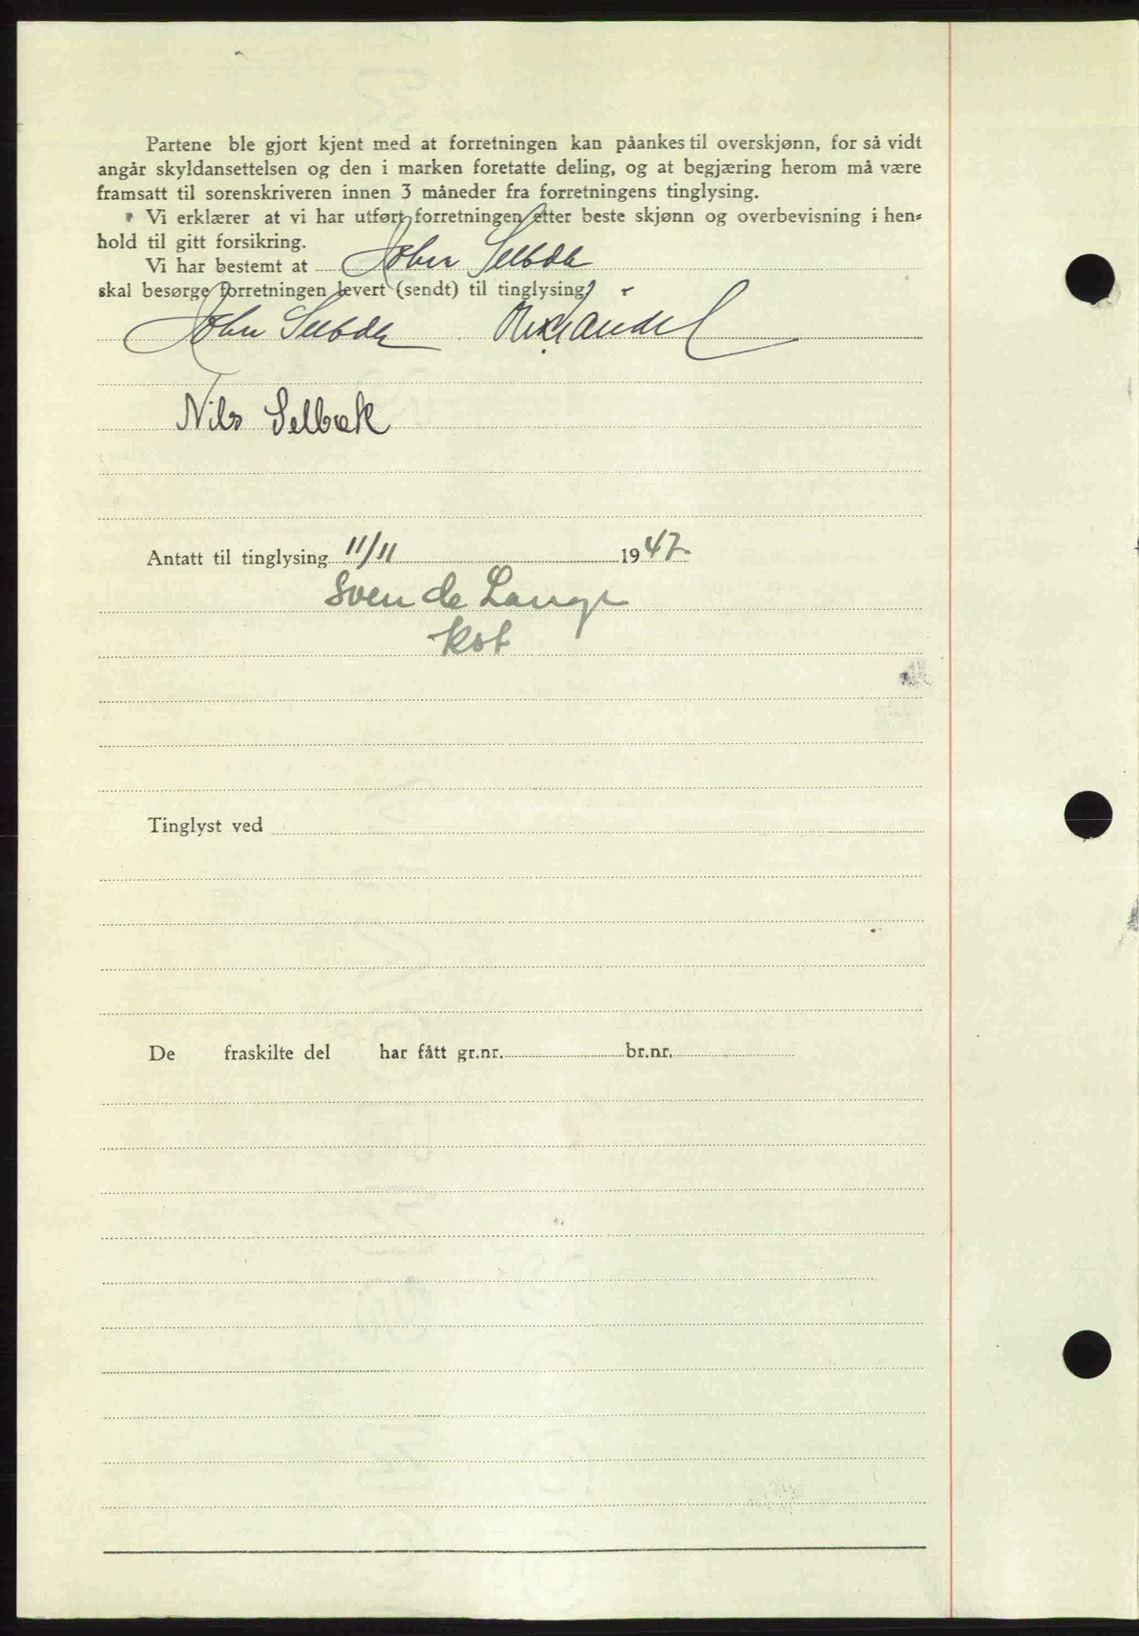 Partene ble gjort kjent med at forretningen kan påankes til overskjønn, for så vidt
angår skyldansettelsen og den i marken foretatte deling, og at begjæring herom må være
framsatt til sorenskriveren innen 3 måneder fra forretningens tinglysing.
Vi erklærer at vi har utført forretningen etter beste skjønn og overbevisning i hen-
hold til gitt forsikring.
Vi har bestemt at John Selbæk
skal besørge forretningen levert (sendt) til tinglysing.
John Selbæk
Nils Selbæk
Antatt til tinglysing 11/11 1947
Sven de Lange
kst
Tinglyst ved
De fraskilte del har fått gr.nr. br.nr.